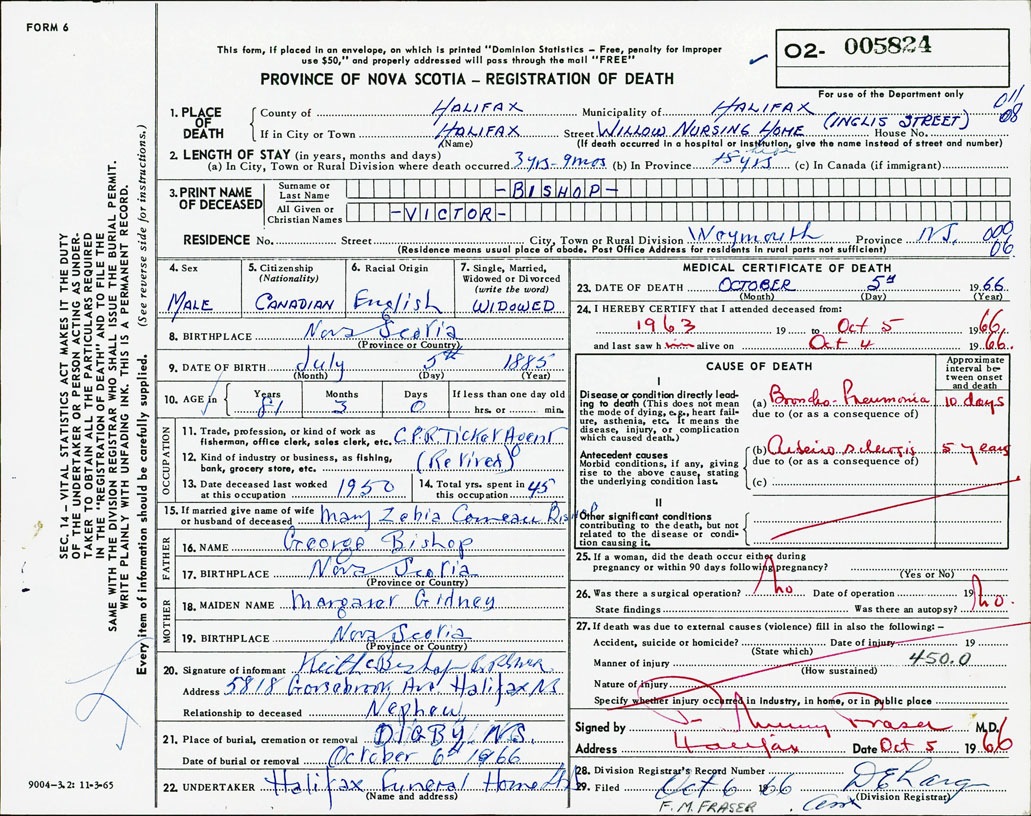 FORM 6
This form, if placed in an envelope, on which is printed "Dominion Statistics – Free, penalty for improper
use $50," and properly addressed will pass through the mail "FREE"
PROVINCE OF NOVA SCOTIA – REGISTRATION OF DEATH
02- 005824
For use of the Department only
011
08
1. PLACE OF DEATH
County of HALIFAX Municipality of HALIFAX
If in City or Town HALIFAX Street WILLOW NURSING HOME (INGLIS STREET) House No.
(Name) (If death occurred in a hospital or institution, give the name instead of street and number)
2. LENGTH OF STAY (in years, months and days)
(a) In City, Town or Rural Division where death occurred 3 yrs- 9 mos (b) In Province (c) In Canada (if immigrant)
3. PRINT NAME OF DECEASED
Surname or Last Name -BISHOP-
All Given or Christian Names -VICTOR-
RESIDENCE No. Street City, Town or Rural Division Weymouth Province N.S. 000
06
(Residence means usual place of abode. Post Office Address for residents in rural parts not sufficient)
4. Sex MALE
5. Citizenship (Nationality) CANADIAN
6. Racial Origin English
7. Single, Married, Widowed or Divorced (write the word) WIDOWED
8. BIRTHPLACE Nova Scotia
(Province or Country)
9. DATE OF BIRTH July 5th 1885
(Month) (Day) (Year)
10. AGE in Years Months Days If less than one day old
81 3 0 hrs. or min.
OCCUPATION
11. Trade, profession, or kind of work as
fisherman, office clerk, sales clerk, etc. C.P.R Ticket Agent
12. Kind of industry or business, as fishing,
bank, grocery store, etc. (Retired)
13. Date deceased last worked
at this occupation 1950
14. Total yrs. spent in
this occupation 45
15. If married give name of wife
or husband of deceased Mary Zebia Comeau Bishop
FATHER
16. NAME George Bishop
17. BIRTHPLACE Nova Scotia
(Province or Country)
MOTHER
18. MAIDEN NAME Margaret Gidney
19. BIRTHPLACE Nova Scotia
(Province or Country)
20. Signature of informant Keith C Bishop
Address 5818 Gorsebrook Ave Halifax NS
Relationship to deceased Nephew
21. Place of burial, cremation or removal DIGBY, N.S.
Date of burial or removal October 6th 1966
22. UNDERTAKER Halifax Funeral Home
(Name and address)
MEDICAL CERTIFICATE OF DEATH
23. DATE OF DEATH OCTOBER 5th 1966
(Month) (Day) (Year)
24. I HEREBY CERTIFY that I attended deceased from:
1963 19 to Oct 5 1966
and last saw him alive on Oct 4 1966
CAUSE OF DEATH
Approximate interval between onset and death
I
Disease or condition directly leading to death (This does not mean the mode of dying, e.g., heart failure, asthenia, etc. It means the disease, injury, or complication which caused death.)
(a) Broncho-Pneumonia 10 days
due to (or as a consequence of)
Antecedent causes
Morbid conditions, if any, giving rise to the above cause, stating the underlying condition last.
(b) Arteriosclerosis 5 years
due to (or as a consequence of)
(c)
II
Other significant conditions
contributing to the death, but not related to the disease or condition causing it.
25. If a woman, did the death occur either during
pregnancy or within 90 days following pregnancy?
(Yes or No)
26. Was there a surgical operation? no Date of operation 19
State findings Was there an autopsy? no.
27. If death was due to external causes (violence) fill in also the following: –
Accident, suicide or homicide? Date of injury 19
(State which)
Manner of injury 450.0
(How sustained)
Nature of injury
Specify whether injury occurred in industry, in home, or in public place
Signed by Fraser M.D.
Address Halifax Date Oct 5 1966
28. Division Registrar's Record Number
29. Filed Oct 6 1966
(Division Registrar)
F. M. FRASER
SEC. 14 – VITAL STATISTICS ACT MAKES IT THE DUTY
OF THE UNDERTAKER OR PERSON ACTING AS UNDER-
TAKER TO OBTAIN ALL THE PARTICULARS REQUIRED
IN THE "REGISTRATION OF DEATH" AND TO FILE THE
SAME WITH THE DIVISION REGISTRAR WHO SHALL ISSUE THE BURIAL PERMIT.
WRITE PLAINLY WITH UNFADING INK. THIS IS A PERMANENT RECORD.
Every item of information should be carefully supplied. (See reverse side for instructions.)
9004–3.2: 11-3-65